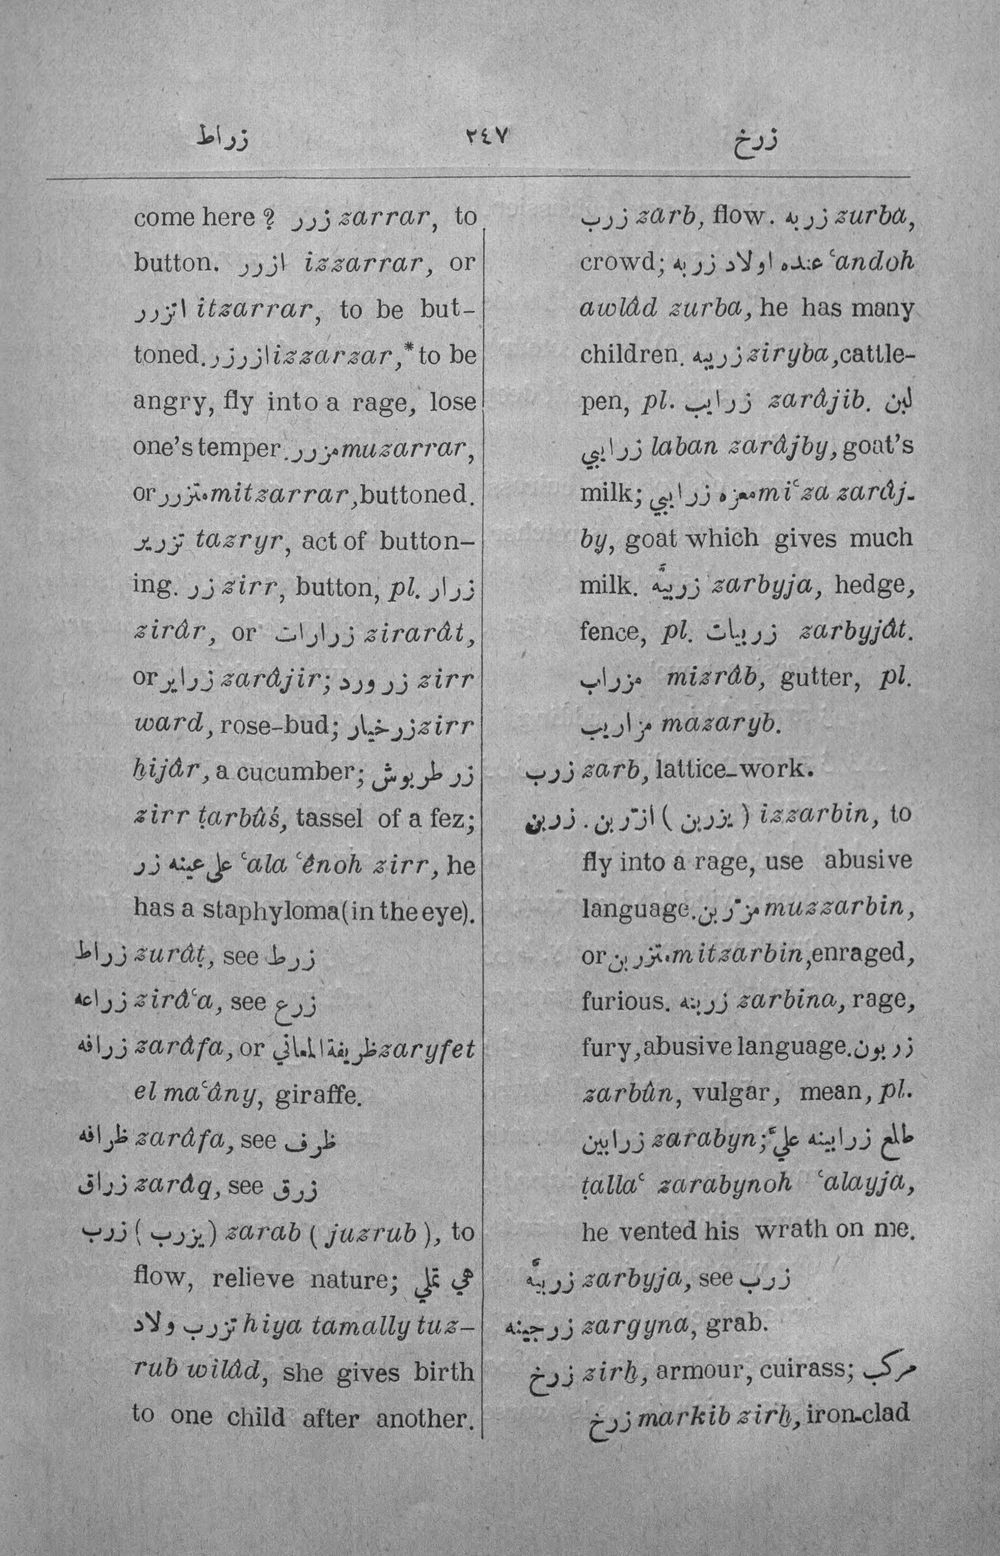 زراط ٢٤٧ زرخ
come here ? زرر zarrar, to
button. ازرر izzarrar, or
اتزرر itzarrar, to be but-
toned. ازرزر izzarzar,* to be
angry, fly into a rage, lose
one's temper. مزرر muzarrar,
or متزرر mitzarrar, buttoned.
تزرير tazryr, act of button-
ing. زر zirr, button, pl. زرار
zirâr, or زرارات zirarât,
or زراير zarâjir; زر ورد zirr
ward, rose-bud; زرخيار zirr
ḫijâr, a cucumber; زر طربوش
zirr ṭarbûś, tassel of a fez;
على عينه زر ʿala ʿênoh zirr, he
has a staphyloma (in the eye).
زراط zurâṭ, see زرط
زراعه zirâʿa, see زرع
زرافه zarâfa, or ظريفة المعاني zaryfet
el maʿâny, giraffe.
ظرافه zarâfa, see ظرف
زراق zarâq, see زرق
زرب ( يزرب ) zarab ( juzrub ), to
flow, relieve nature; هي تملي
تزرب ولاد hiya tamally tuz-
rub wilâd, she gives birth
to one child after another.
زرب zarb, flow. زربه zurba,
crowd; عنده اولاد زربه ʿandoh
awlâd zurba, he has many
children. زريبه ziryba, cattle-
pen, pl. زرايب zarâjib. لبن
زرايبي laban zarâjby, goat's
milk; معزه زرايبي miʿza zarâj-
by, goat which gives much
milk. زربيَّه zarbyja, hedge,
fence, pl. زربيات zarbyjât.
مزراب mizrâb, gutter, pl.
مزاريب mazaryb.
زرب zarb, lattice-work.
زربن . ازّربن ( يزربن ) izzarbin, to
fly into a rage, use abusive
language. مزّربن muzzarbin,
or متزربن mitzarbin, enraged,
furious. زربنه zarbina, rage,
fury, abusive language. زربون
zarbûn, vulgar, mean, pl.
زرابين zarabyn; طلع زرابينه عليَّ
ṭallaʿ zarabynoh ʿalayja,
he vented his wrath on me.
زربيَّه zarbyja, see زرب
زرجينه zargyna, grab.
زرخ zirḫ, armour, cuirass; مركب
زرخ markib zirḫ, iron-clad